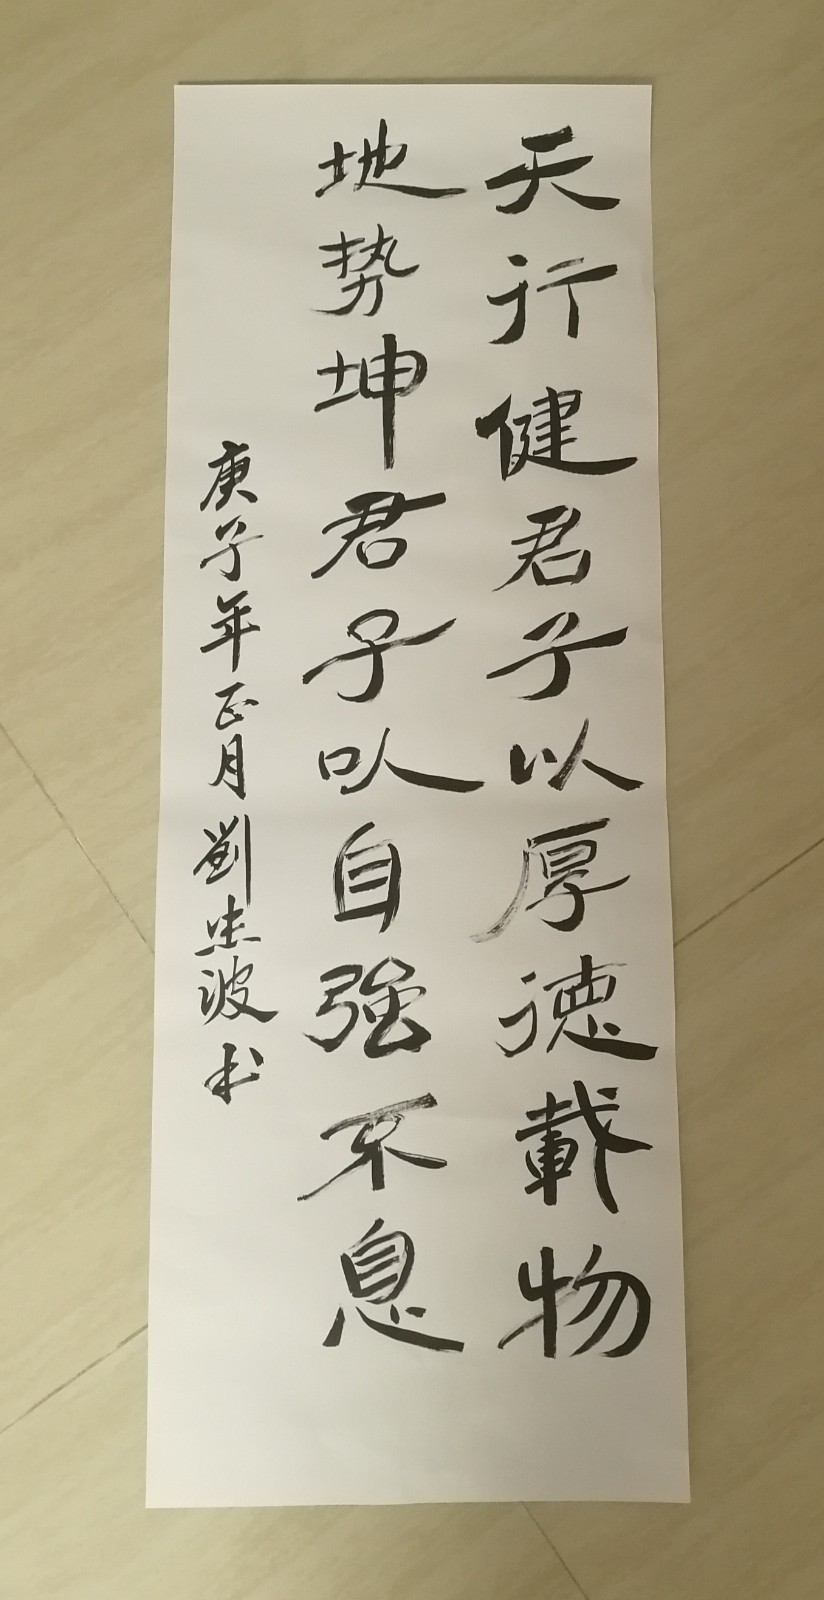 天行健君子以厚德載物
地势坤君子以自強不息
庚子年正月劉忠波书